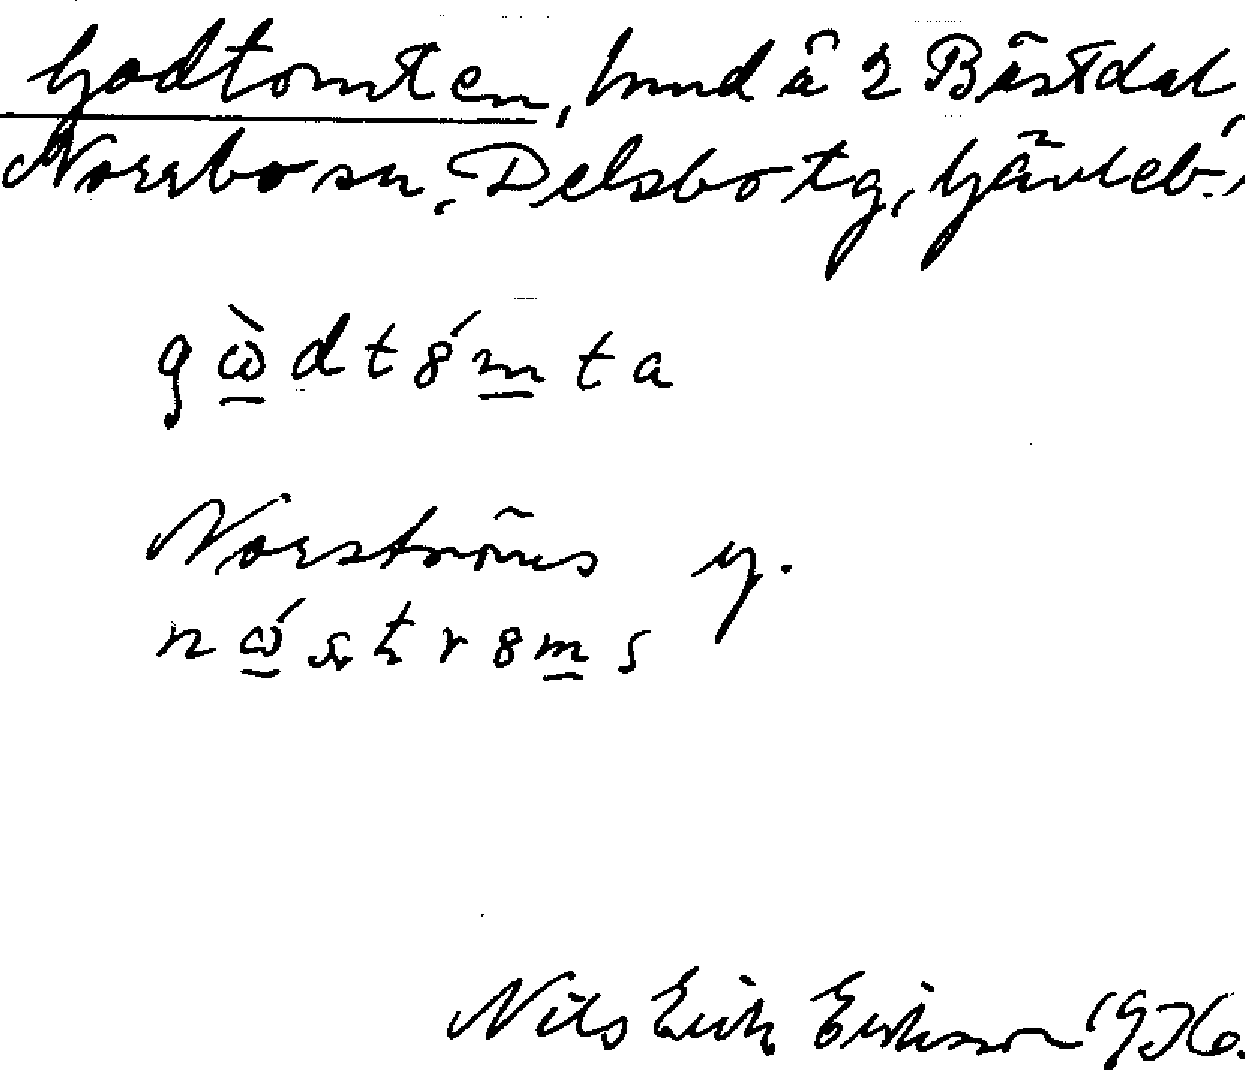 Godtomten, hmd å 2 Bästdal,
Norrbo sn, Delsbo tg, Gävleb.
gὼ̱dt8́m̱ta
Norströms y.
nώ̱str8m̱s
Nils Erik Eriksson 1936.